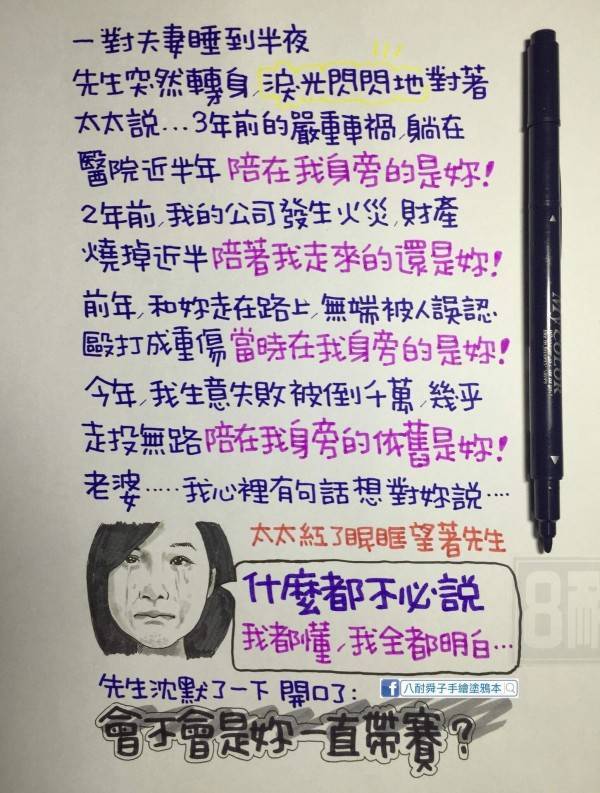 一對夫妻睡到半夜
先生突然轉身,淚光閃閃地對著
太太說...3年前的嚴重車禍,躺在
醫院近半年陪在我身旁的是妳!
2年前,我的公司發生火災,財產
燒掉近半陪著我走來的還是妳!
前年,和妳走在路上,無端被人誤認
毆打成重傷當時在我身旁的是妳!
今年,我生意失敗被倒千萬,幾乎
走投無路陪在我身旁的依舊是妳!
老婆.....我心裡有句話想對妳說....
太太紅了眼眶望著先生
什麼都不必說
我都懂,我全都明白...
先生沈默了一下 開口了:
八耐舜子手繪塗鴉本
會不會是妳一直帶賽?
MY COLOR
8耐